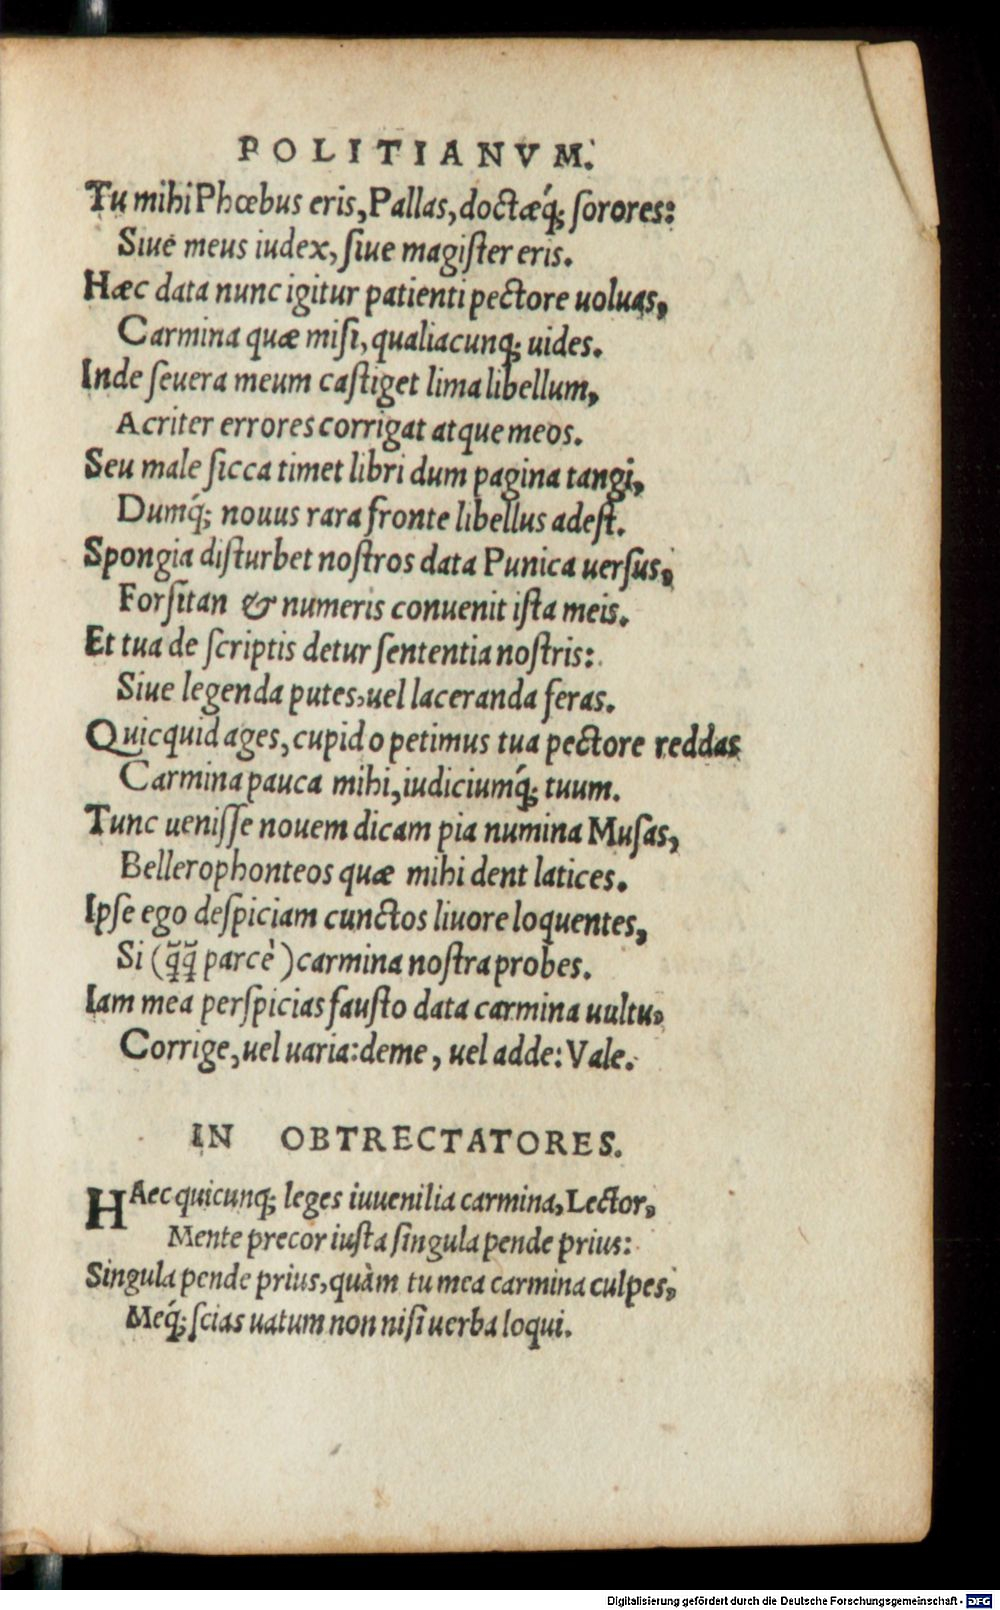 POLITIANVM.
Tu mihi Phœbus eris, Pallas, doctæq́; ſorores:
Siue meus iudex, ſiue magiſter eris.
Hæc data nunc igitur patienti pectore uoluas,
Carmina quæ miſi, qualiacunq; uides.
Inde ſeuera meum caſtiget lima libellum,
Acriter errores corrigat atque meos.
Seu male ſicca timet libri dum pagina tangi,
Dumq́; nouus rara fronte libellus adeſt.
Spongia diſturbet noſtros data Punica uerſus,
Forſitan & numeris conuenit iſta meis.
Et tua de ſcriptis detur ſententia noſtris:
Siue legenda putes, uel laceranda feras.
Quicquid ages, cupido petimus tua pectore reddas
Carmina pauca mihi, iudiciumq́; tuum.
Tunc ueniſſe nouem dicam pia numina Muſas,
Bellerophonteos quæ mihi dent latices.
Ipſe ego deſpiciam cunctos liuore loquentes,
Si (q̃q̃ parcè) carmina noſtra probes.
Iam mea perſpicias fauſto data carmina uultu,
Corrige, uel uaria: deme, uel adde: Vale.
IN OBTRECTATORES.
HAec quicunq; leges iuuenilia carmina, Lector,
Mente precor iuſta ſingula pende prius:
Singula pende prius, quàm tu mea carmina culpes,
Meq́; ſcias uatum non niſi uerba loqui.
Digitalisierung gefördert durch die Deutsche Forschungsgemeinschaft - DFG